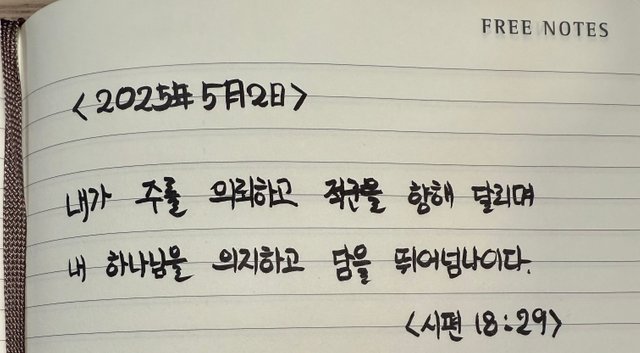 FREE NOTES
<2025年 5月2日>
내가 주를 의뢰하고 적군을 향해 달리며
내 하나님을 의지하고 담을 뛰어넘나이다.
<시편 18:29>